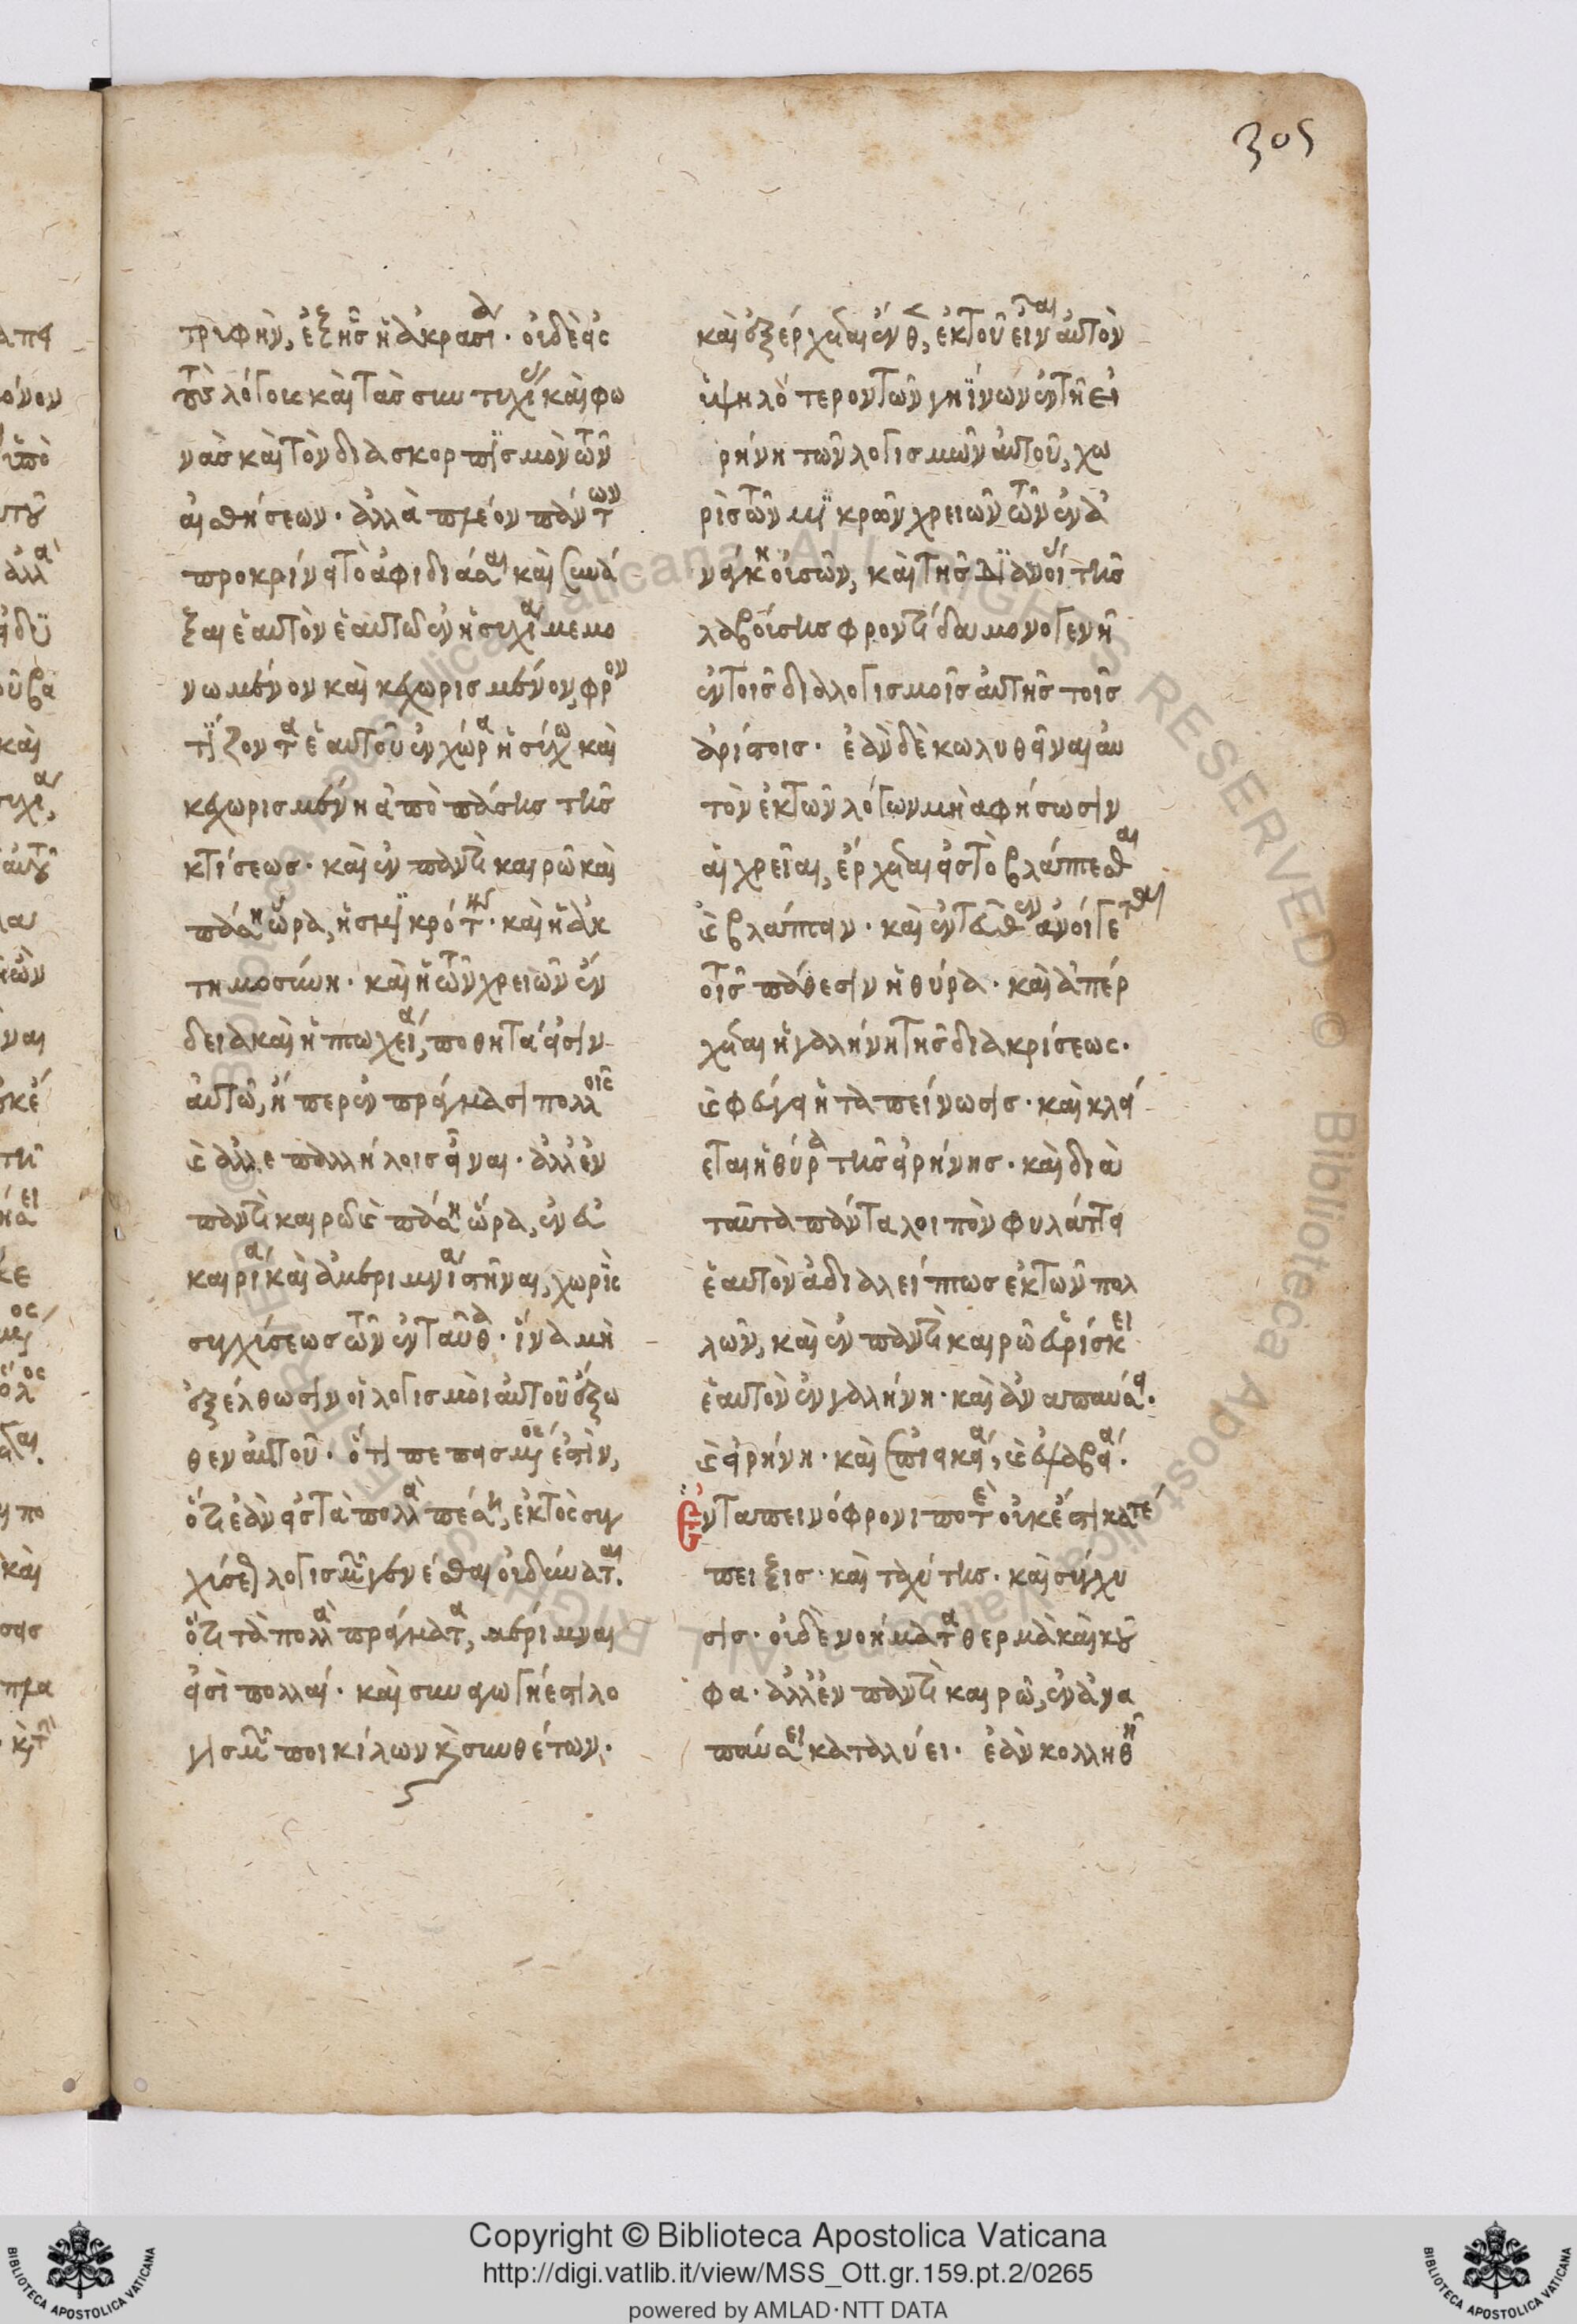 305
τρυφὴν, ἐξ ἧς ἡ ἀκρασία. οὐδὲ εἰς
τοὺς λόγους καὶ τὰς συντυχίας καὶ φω
νὰς καὶ τὸν διασκορπισμὸν τῶν
αἰσθήσεων. ἀλλὰ πλέον πάντων
προκρίνει τὸ ἀφιδιάσαι καὶ συνά
ξαι ἑαυτὸν ἑαυτῶ ἐν ἡσυχία μεμο
νωμένον καὶ κεχωρισμένον, φρον
τίζοντα ἑαυτοῦ ἐν χώρα ἡσύχω καὶ
κεχωρισμένη ἀπὸ πάσης τῆς
κτίσεως. καὶ ἐν παντὶ καιρῶ καὶ
πάση ὥρα, ἡ σμικρότης. καὶ ἡ ἀκ
τημοσύνη. καὶ ἡ τῶν χρειῶν ἔν
δεια καὶ ἡ πτωχεία, ποθητά εἰσιν
αὐτῶ, ἤπερ ἐν πράγμασι πολλοῖς
καὶ ἀλλεπαλλήλοις εἶναι. ἀλλ' ἐν
παντὶ καιρῶ καὶ πάση ὥρα, ἐν εὐ
καιρία καὶ ἀμεριμνία στῆναι, χωρὶς
συγχύσεως τῶν ἐνταῦθα. ἵνα μὴ
ἐξέλθωσιν οἱ λογισμοὶ αὐτοῦ ἔξω
θεν αὐτοῦ. ὅτι πεπεισμένος ἐστὶν,
ὅτι ἐὰν εἰς τὰ πολλὰ πέση, ἐκτὸς συγ
χύσεως λογισμῶν γενέσθαι οὐ δύναται.
ὅτι τὰ πολλὰ πράγματα, μέριμναι
εἰσὶ πολλαί. καὶ συναγωγή ἐστι λο
γισμῶν ποικίλων καὶ συνθέτων.
καὶ ἐξέρχεται ἐντεῦθεν, ἐκ τοῦ εἶναι αὐτὸν
ὑψηλότερον τῶν γηΐνων ἐν τῆ εἰ
ρήνη τῶν λογισμῶν αὐτοῦ, χω
ρὶς τῶν μικρῶν χρειῶν τῶν ἐν ἀ
νάγκη οὐσῶν, καὶ τῆς διανοίας τῆς
λαβούσης φροντίδα μονογενῆ
ἐν τοῖς διαλογισμοῖς αὐτῆς τοῖς
ἀρίστοις. ἐὰν δὲ κωλυθῆναι αὐ
τὸν ἐκ τῶν λόγων μὴ ἀφήσωσιν
αἱ χρεῖαι, ἔρχεται εἰς τὸ βλάπτεσθαι
καὶ βλάπτειν. καὶ ἐντεῦθεν ἀνοίγεται
τοῖς πάθεσιν ἡ θύρα. καὶ ἀπέρ
χεται ἡ γαλήνη τῆς διακρίσεως.
καὶ φεύγει ἡ ταπείνωσις. καὶ κλεί
εται ἡ θύρα τῆς εἰρήνης. καὶ διὰ
ταῦτα πάντα λοιπὸν φυλάττει
ἑαυτὸν ἀδιαλείπτως ἐκ τῶν πολ
λῶν, καὶ ἐν παντὶ καιρῶ εὑρίσκει
ἑαυτὸν ἐν γαλήνη. καὶ ἀναπαύσει.
καὶ εἰρήνη. καὶ ἐπιεικεία, καὶ εὐλαβεία.
Ἐν ταπεινόφρονι ποτὲ οὐκ ἔστι κατέ
πειξις. καὶ ταχύτης. καὶ σύγχυ
σις. οὐδὲ νοήματα θερμὰ καὶ κοῦ
φα. ἀλλ' ἐν παντὶ καιρῶ, ἐν ἀνα
παύσει καταλύει. ἐὰν κολληθῆ
Copyright © Biblioteca Apostolica Vaticana
http://digi.vatlib.it/view/MSS_Ott.gr.159.pt.2/0265
powered by AMLAD·NTT DATA